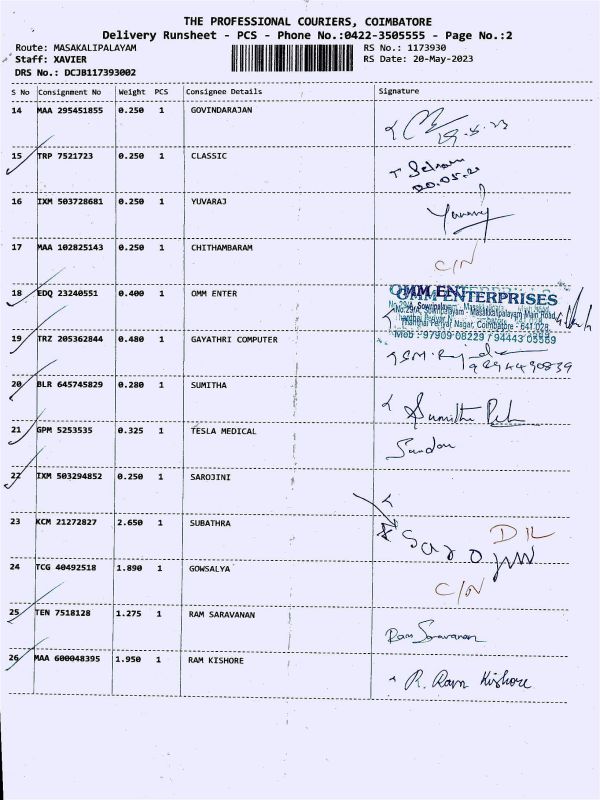 THE PROFESSIONAL COURIERS, COIMBATORE
Delivery Runsheet - PCS - Phone No.:0422-3505555 - Page No.:2
Route: MASAKALIPALAYAM RS No.: 1173930
Staff: XAVIER RS Date: 20-May-2023
DRS No.: DCJB117393002
S No Consignment No Weight PCS Consignee Details Signature
14 MAA 295451855 0.250 1 GOVINDARAJAN
15 TRP 7521723 0.250 1 CLASSIC
20.05.2
16 IXM 503728681 0.250 1 YUVARAJ
17 MAA 102825143 0.250 1 CHITHAMBARAM
C/N
18 EDQ 23240551 0.400 1 OMM ENTER
OMM ENTERPRISES
No:29/A, Sowripalayam - Masakkalipalayam Main Road,
Thanthai Periyar Nagar, Coimbatore - 641 028
Mob : 97909 08229 / 94443 05569
19 TRZ 205362844 0.480 1 GAYATHRI COMPUTER
9894490839
20 BLR 645745829 0.280 1 SUMITHA
Sumitha
21 GPM 5253535 0.325 1 TESLA MEDICAL
22 IXM 503294852 0.250 1 SAROJINI
23 KCM 21272827 2.650 1 SUBATHRA
D/L
Sarojini
24 TCG 40492518 1.890 1 GOWSALYA
C/N
25 TEN 7518128 1.275 1 RAM SARAVANAN
Ram Saravanan
26 MAA 600048395 1.950 1 RAM KISHORE
R. Ram Kishore